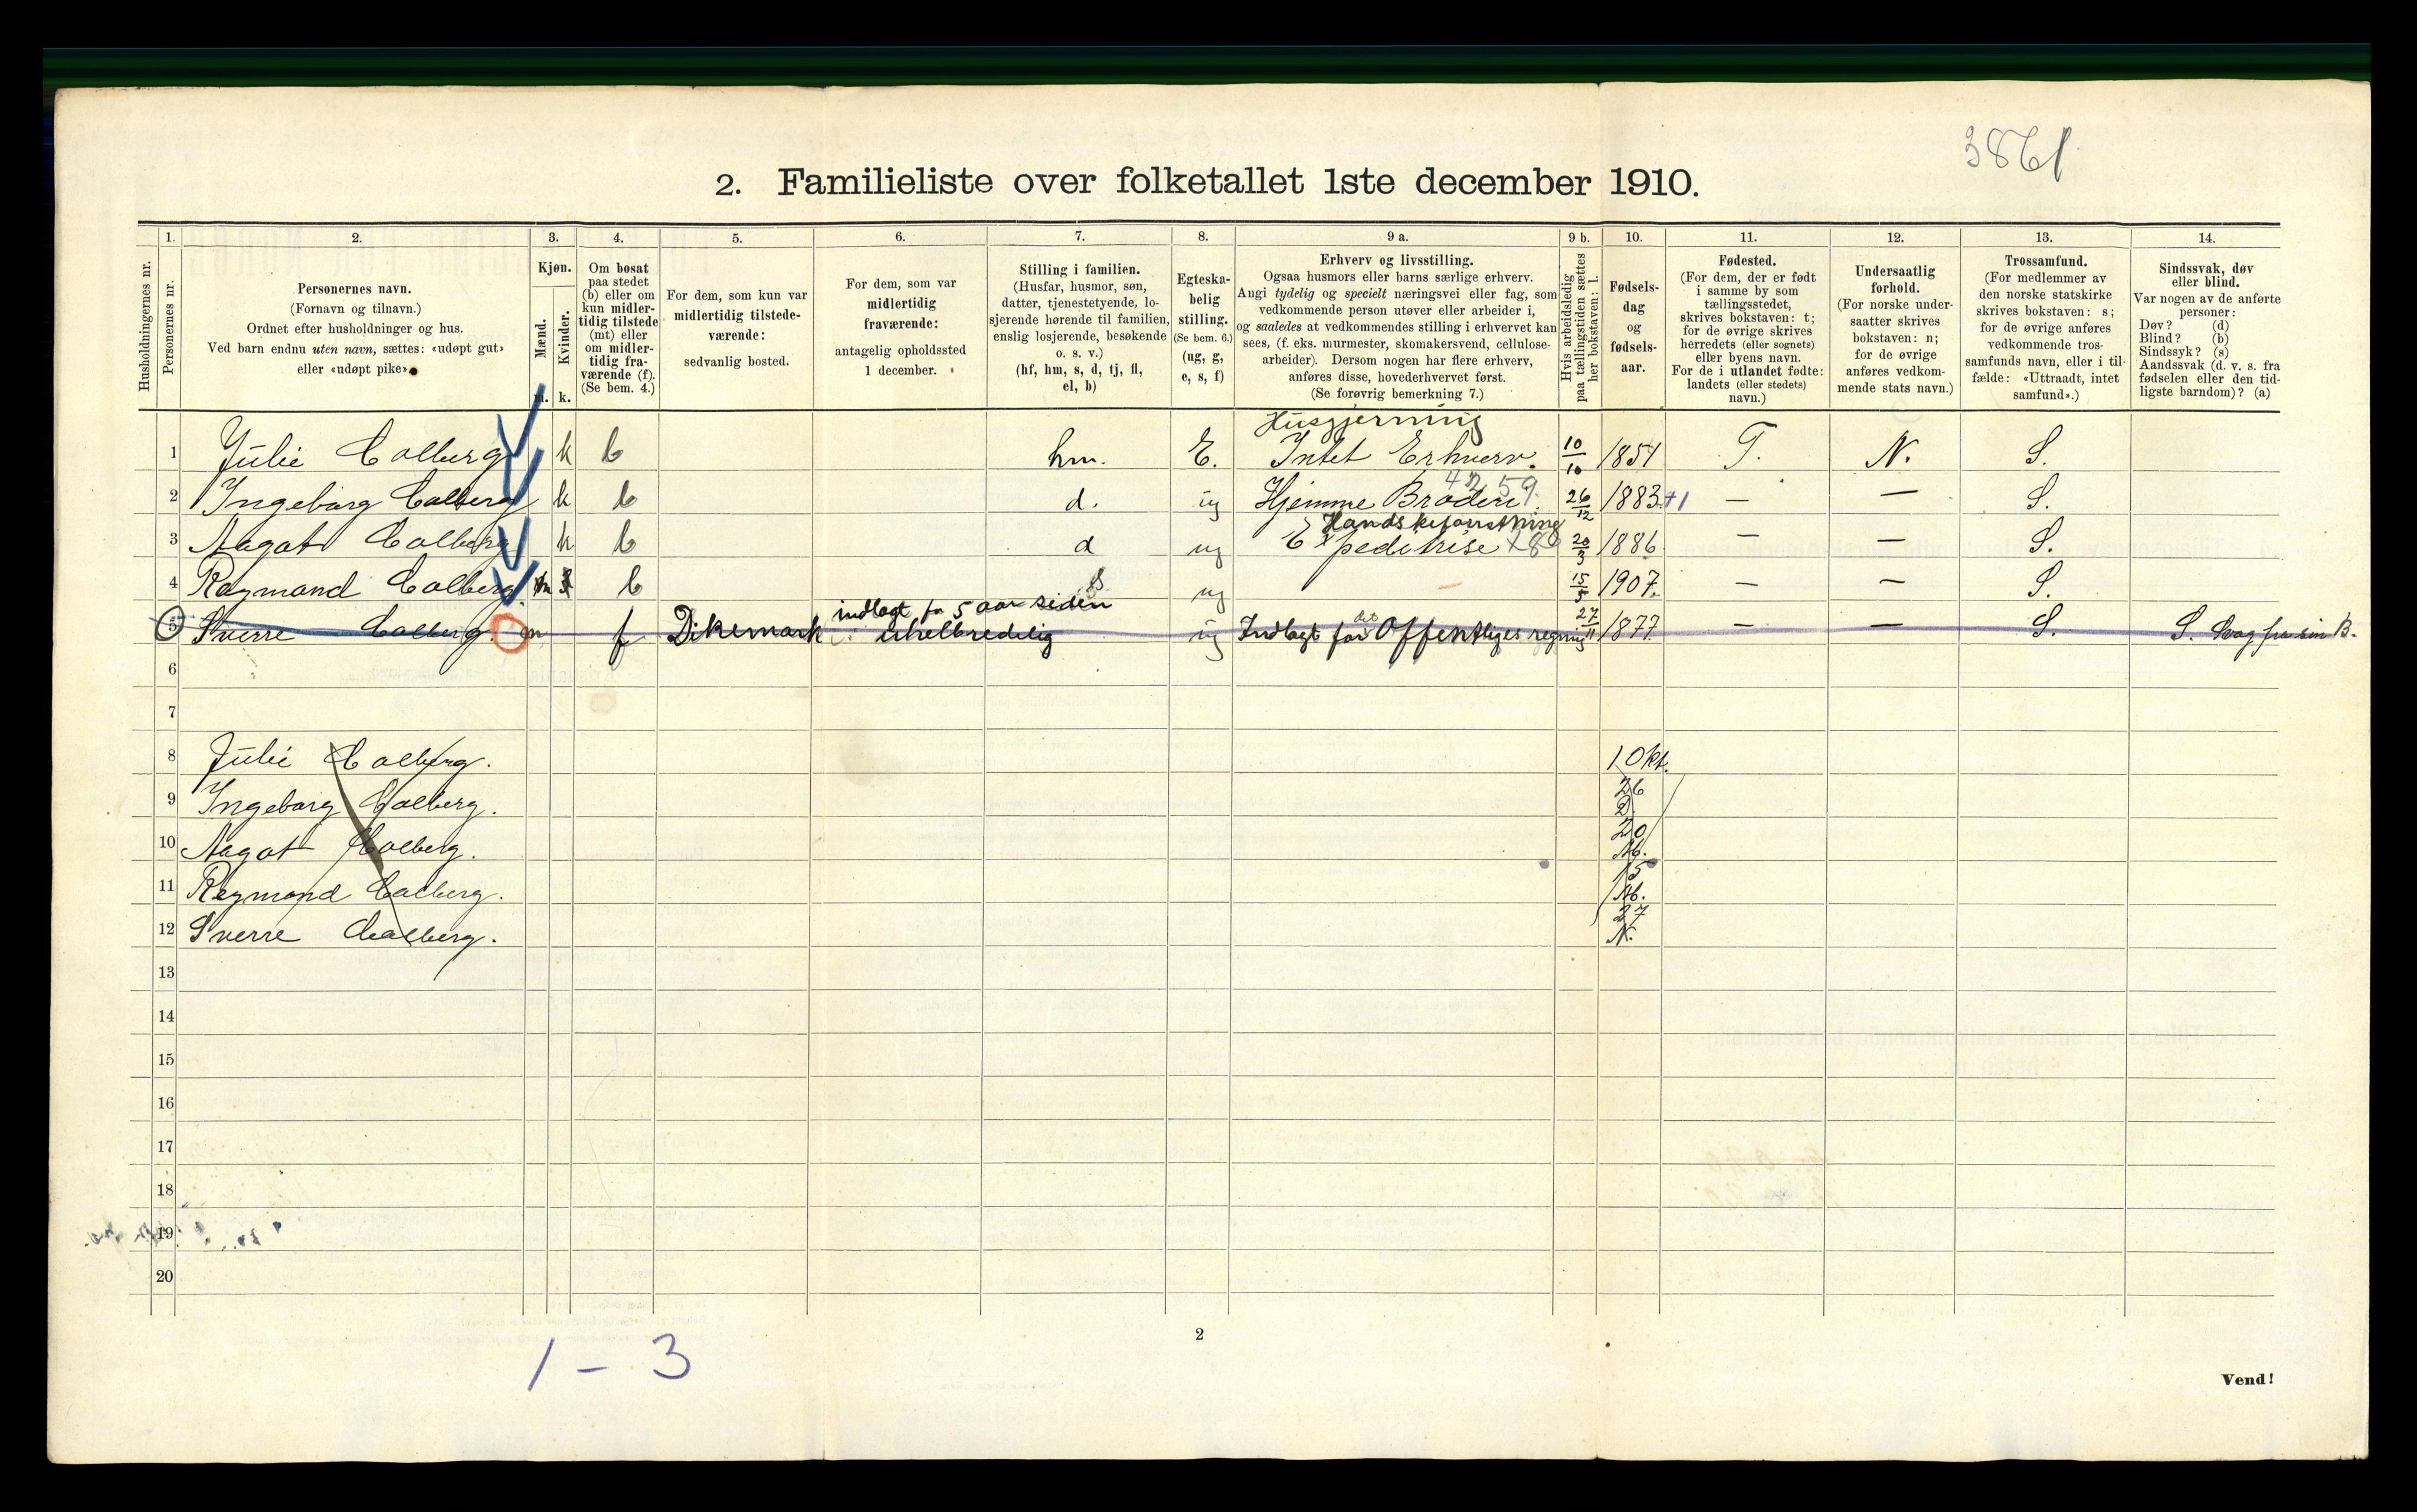 3861
2. Familieliste over folketallet 1ste december 1910.
Husholdningernes nr.
1.
Personernes nr.
2.
Personernes navn.
(Fornavn og tilnavn.)
Ordnet efter husholdninger og hus.
Ved barn endnu uten navn, sættes: «udøpt gut»
eller «udøpt pike».
3.
Kjøn.
Mænd.
Kvinder.
m. k.
4.
Om bosat
paa stedet
(b) eller om
kun midler-
tidig tilstede
(mt) eller
om midler-
tidig fra-
værende (f).
(Se bem. 4.)
5.
For dem, som kun var
midlertidig tilstede-
værende:
sedvanlig bosted.
6.
For dem, som var
midlertidig
fraværende:
antagelig opholdssted
1 december.
7.
Stilling i familien.
(Husfar, husmor, søn,
datter, tjenestetyende, lo-
sjerende hørende til familien,
enslig losjerende, besøkende
o. s. v.)
(hf, hm, s, d, tj, fl,
el, b)
8.
Egteska-
belig
stilling.
(Se bem. 6.)
(ug, g,
e, s, f)
9 a.
Erhverv og livsstilling.
Ogsaa husmors eller barns særlige erhverv.
Angi tydelig og specielt næringsvei eller fag, som
vedkommende person utøver eller arbeider i,
og saaledes at vedkommendes stilling i erhvervet kan
sees, (f. eks. murmester, skomakersvend, cellulose-
arbeider). Dersom nogen har flere erhverv,
anføres disse, hovederhvervet først.
(Se forøvrig bemerkning 7.)
9 b.
Hvis arbeidsledig
paa tællingstiden sættes
her bokstaven: l.
10.
Fødsels-
dag
og
fødsels-
aar.
11.
Fødested.
(For dem, der er født
i samme by som
tællingsstedet,
skrives bokstaven: t;
for de øvrige skrives
herredets (eller sognets)
eller byens navn.
For de i utlandet fødte:
landets (eller stedets)
navn.)
12.
Undersaatlig
forhold.
(For norske under-
saatter skrives
bokstaven: n;
for de øvrige
anføres vedkom-
mende stats navn.)
13.
Trossamfund.
(For medlemmer av
den norske statskirke
skrives bokstaven: s;
for de øvrige anføres
vedkommende tros-
samfunds navn, eller i til-
fælde: «Uttraadt, intet
samfund».)
14.
Sindssvak, døv
eller blind.
Var nogen av de anførte
personer:
Døv? (d)
Blind? (b)
Sindssyk? (s)
Aandssvak (d. v. s. fra
fødselen eller den tid-
ligste barndom)? (a)
Husgjerning
1 Julie Colberg k b hm. E. Intet Erhverv. 10/10 1851 T. N. S.
42 59
2 Ingeborg Colberg k b d. ug Hjemme Broderi 26/12 1883 +1 — — S.
3 Aagot Colberg k b d ug Expeditrise 20/3 1886 — — S.
4 Raymond Colberg. m b ug 15/5 1907. — — S.
indlagt for 5 aar siden
5 Sverre Colberg. m f Dikemark uhelbredelig ug Indlagt for det Offentliges regning 27/11 1877. — — S. S. Svag fra sin B.
6
7
8 Julie Colberg. 10 kt.
9 Ingeborg Colberg. 26 D.
10 Aagot Colberg. 20 M.
11 Reymond Colberg. 15 M.
12 Sverre Colberg. 27 N.
13
14
15
16
17
18
19
20
2
1 – 3
Vend!